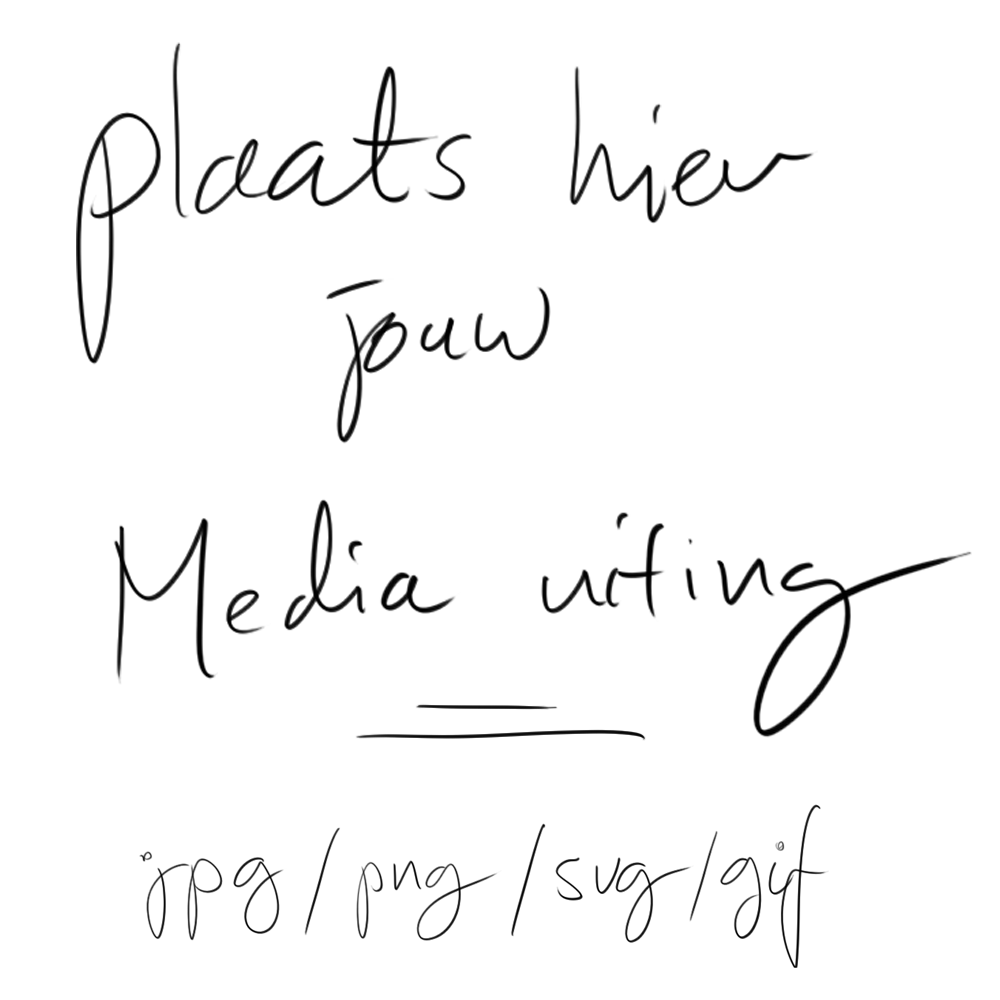 plaats hier
jouw
Media uiting
jpg/png/svg/gif